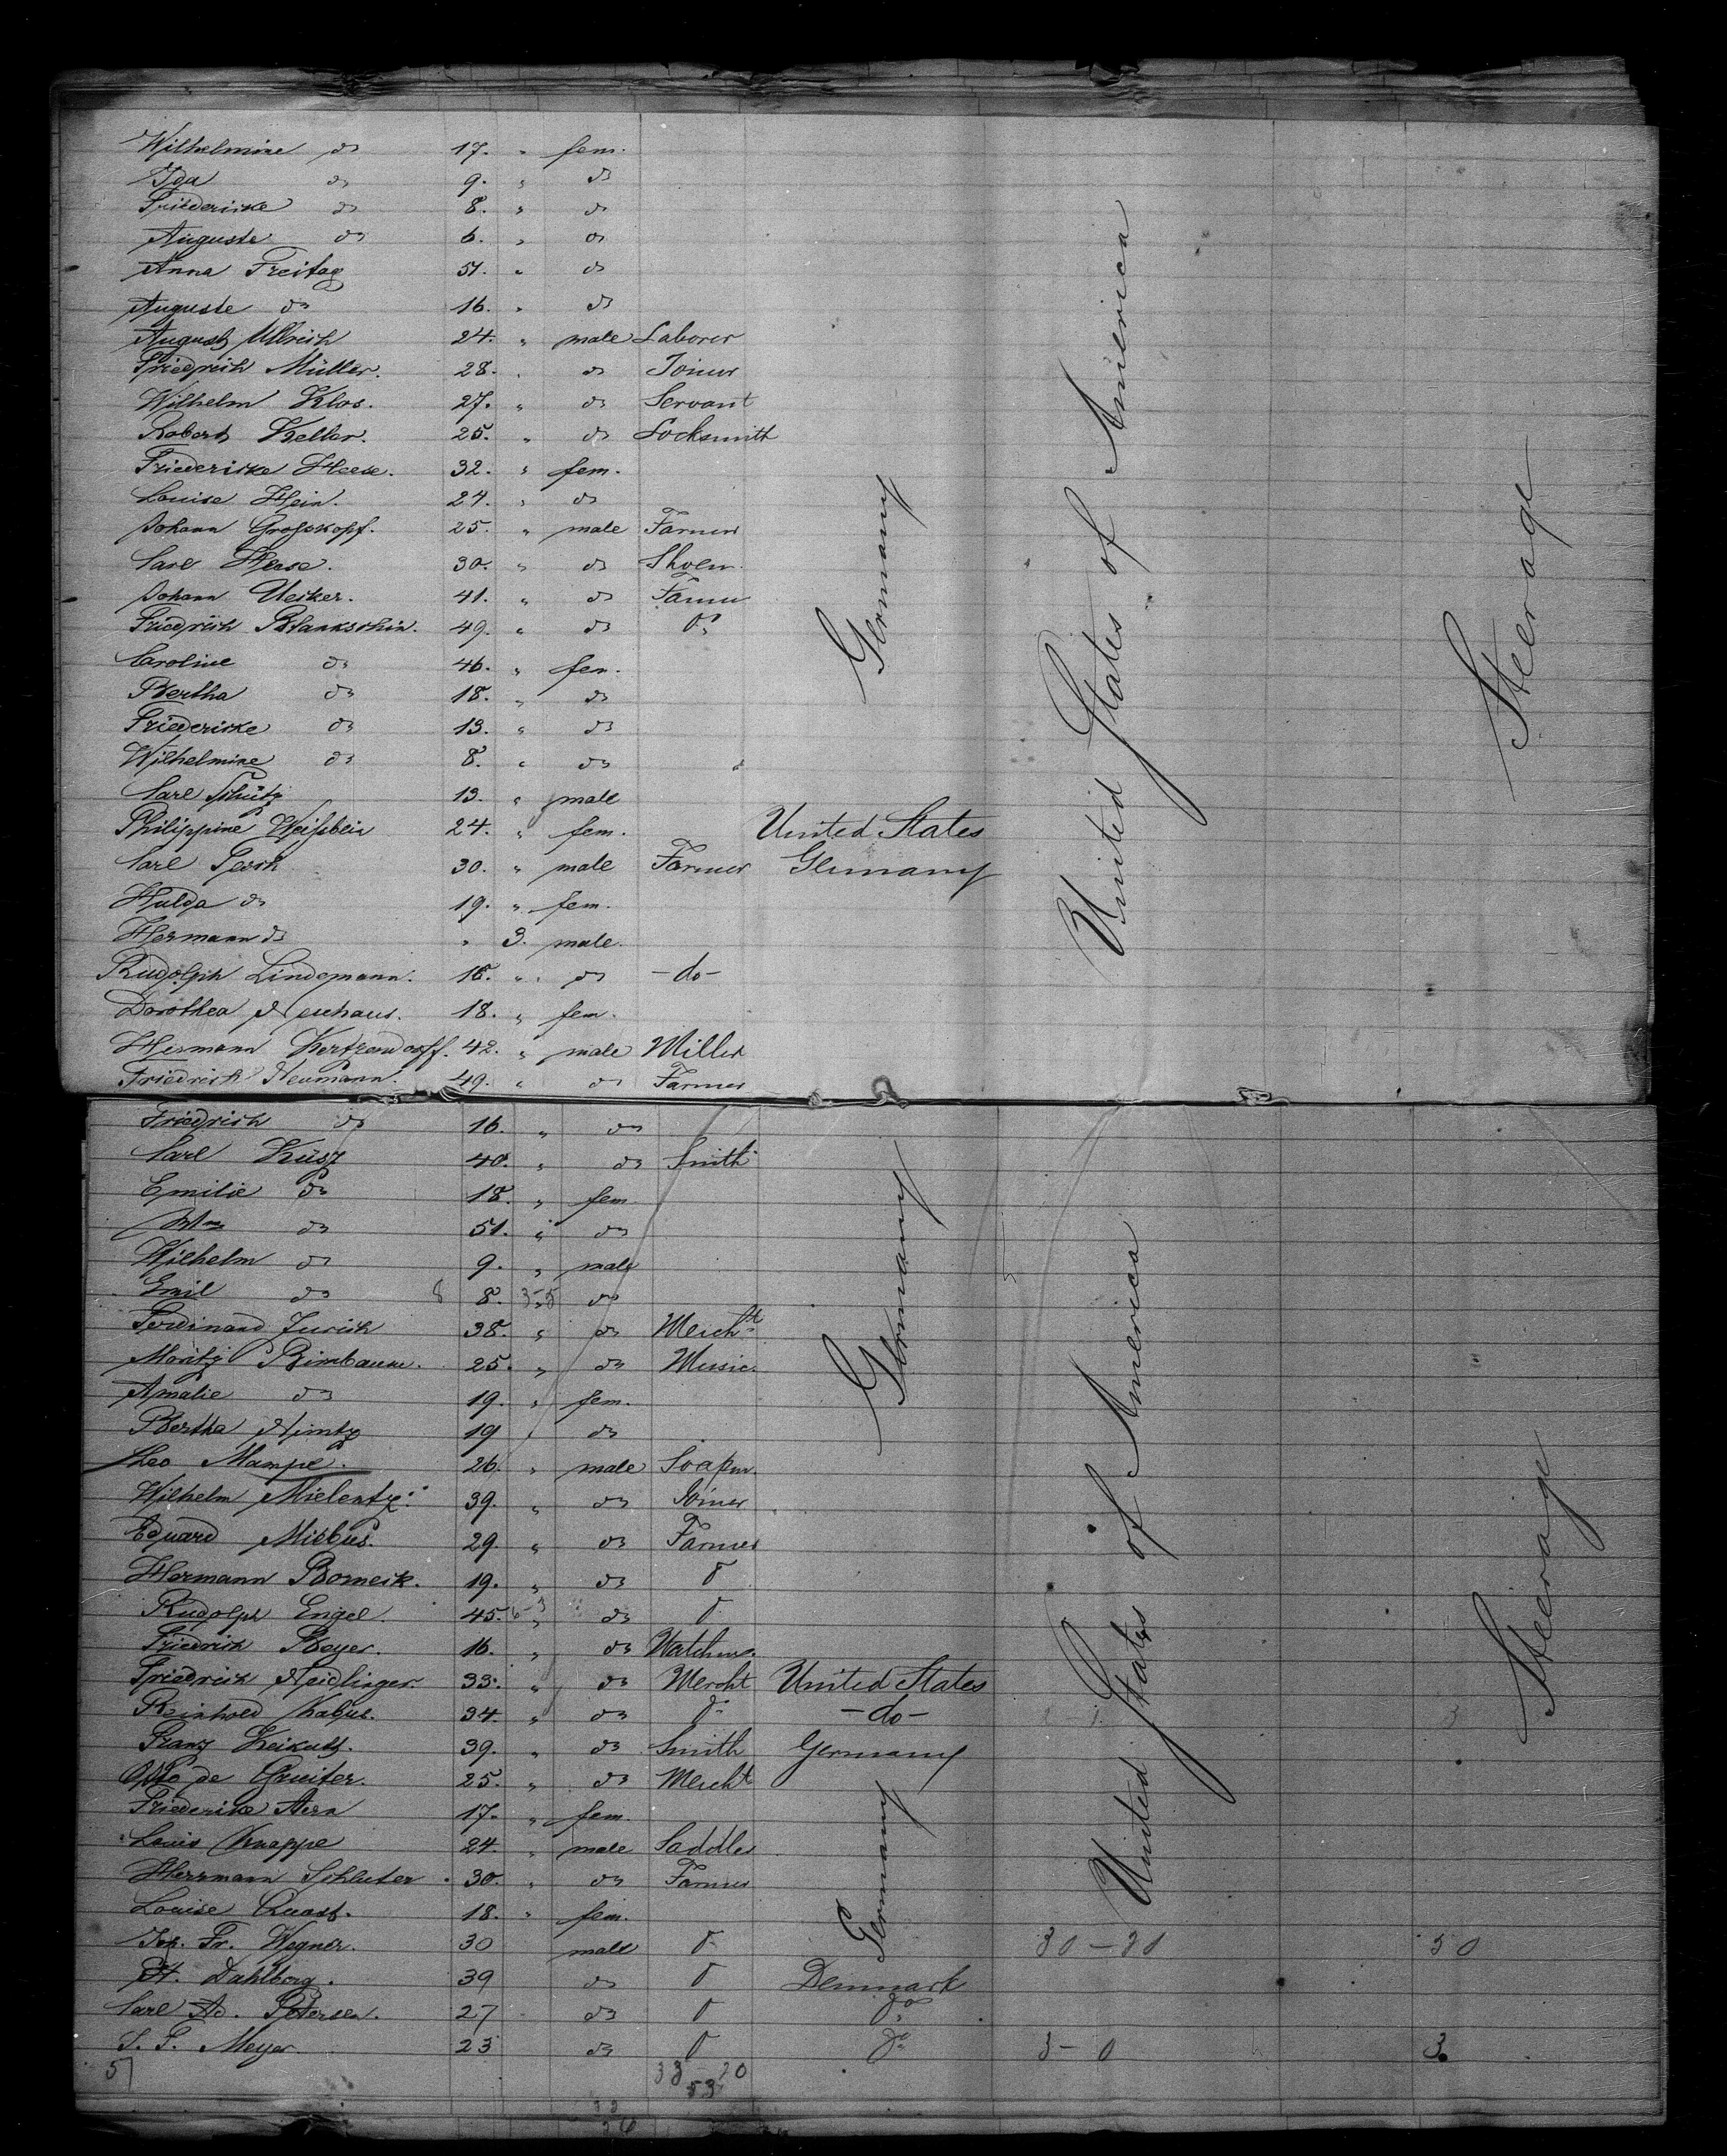 Wilhelmine do 17. " fem.
Ida do 9. " do
Friedericke do 8. " do
Auguste do 6. " do
Anna Freitag 51. " do
Auguste do 16. " do
August Ullrich 24. " male Laborer
Friedrich Müller. 28. " do Joiner
Wilhelm Klos. 27. " do Servant
Robert Keller. 25. " do Locksmith
Friedericke Heese. 32. " fem.
Louise Hein. 24. " do
Johann Großkopf. 25. " male Farmer
Carl Heese. 30. " do Shoem.
Johann Uecker. 41. " do Farmer
Friedrich Blankschin. 49. " do do
Caroline do 46. " fem.
Bertha do 18. " do
Friedericke do 13. " do
Wilhelmine do 8. " do
Carl Schütz 13. " male
Philippine Weißbein 24. " fem. United States
Carl 30. " male Farmer Germany
Hulda do 19. " fem.
Hermann do " 3. male.
Rudolph Lindemann. 18. " do -do-
Dorothea Neuhaus. 18. " fem.
Hermann Kertzendorff. 42. " male Miller
Friedrich Neumann. 49. " do Farmer
Germany
United States of America
Steerage
Friedrich do 16. " do
Carl 40. " do Smith
Emilie do 18. " fem
do 51. " do
Wilhelm do 9. " male
Emil do 8 8. 3-5 do
Ferdinand 38. " do Mercht
Moritz Birnbaum. 25. " do Music.
Amalie do 19. " fem.
Bertha Nimtz 19 " do
Leo Mampe. 26. " male Soapm.
Wilhelm Mielentz. 39. " do Joiner
Eduard Miebus. 29. " do Farmer
Hermann Borneik. 19. " do do
Rudolph Engel. 45. " do do
Friedrich Beyer. 16. " do Watchm.
Friedrich Neidlinger 33. " do Mercht United States
Reinhold 34. " do do -do-
Franz 39. " do Smith Germany
Otto de Gruiter. 25. " do Mercht
Friedericke 17. " fem.
Louis Knappe 24. " male Saddler
Herrmann Schluter. 30. " do Farmer
Louise Quast. 18. " fem.
Joh. Fr. Wegner. 30 male do 30-30 50
H. Dahlberg. 39 do do Denmark
Carl Ad. Petersen. 27 do do do
S. F. Meyer. 23 do do do 3-0 3
57 33 20
53
Germany
Germany
United States of America
Steerage